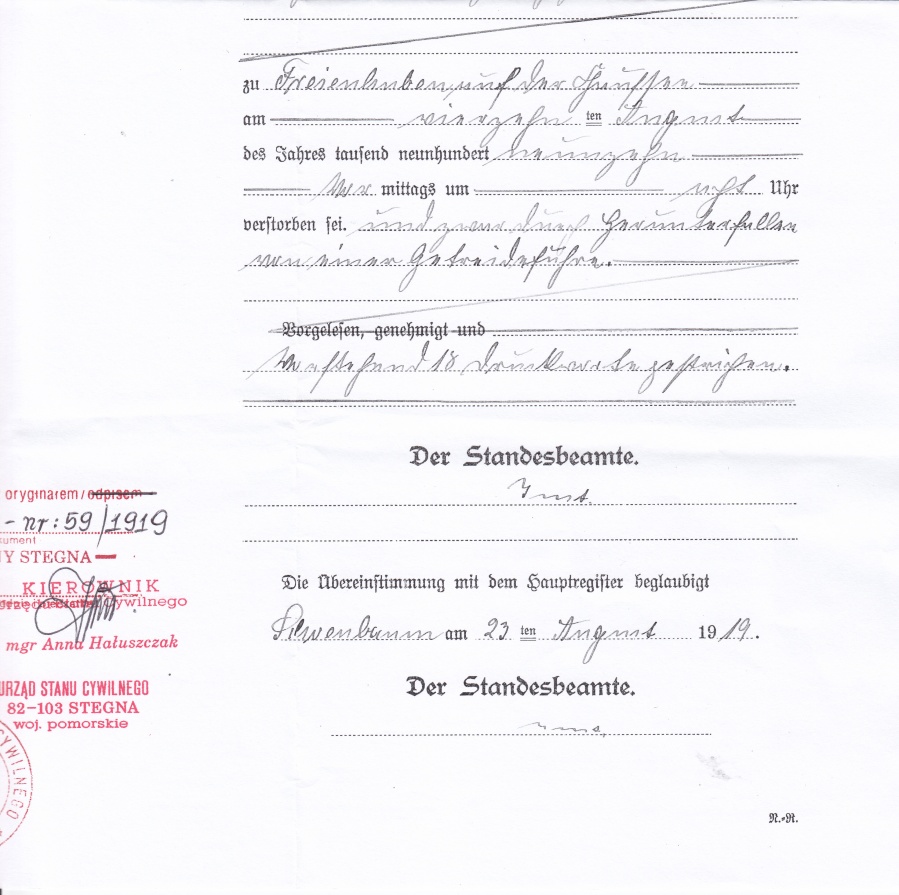 zu Freienhuben, auf der Chaussee
am vierzehn ten August
des Jahres tausend neunhundert neunzehn
Vor mittags um acht Uhr
verstorben sei. und zwar durch Herunterfallen
von einer Getreidefuhre.
Vorgelesen, genehmigt und
Vorstehend 18 Druckworte gestrichen.
Der Standesbeamte.
oryginałem/odpisem
- nr: 59/1919
NY STEGNA
KIEROWNIK
Cywilnego
mgr Anna Hałuszczak
URZĄD STANU CYWILNEGO
82-103 STEGNA
woj. pomorskie
CYWILNEGO
Die Übereinstimmung mit dem Hauptregister beglaubigt
am 23 ten August 1919.
Der Standesbeamte.
N.-R.